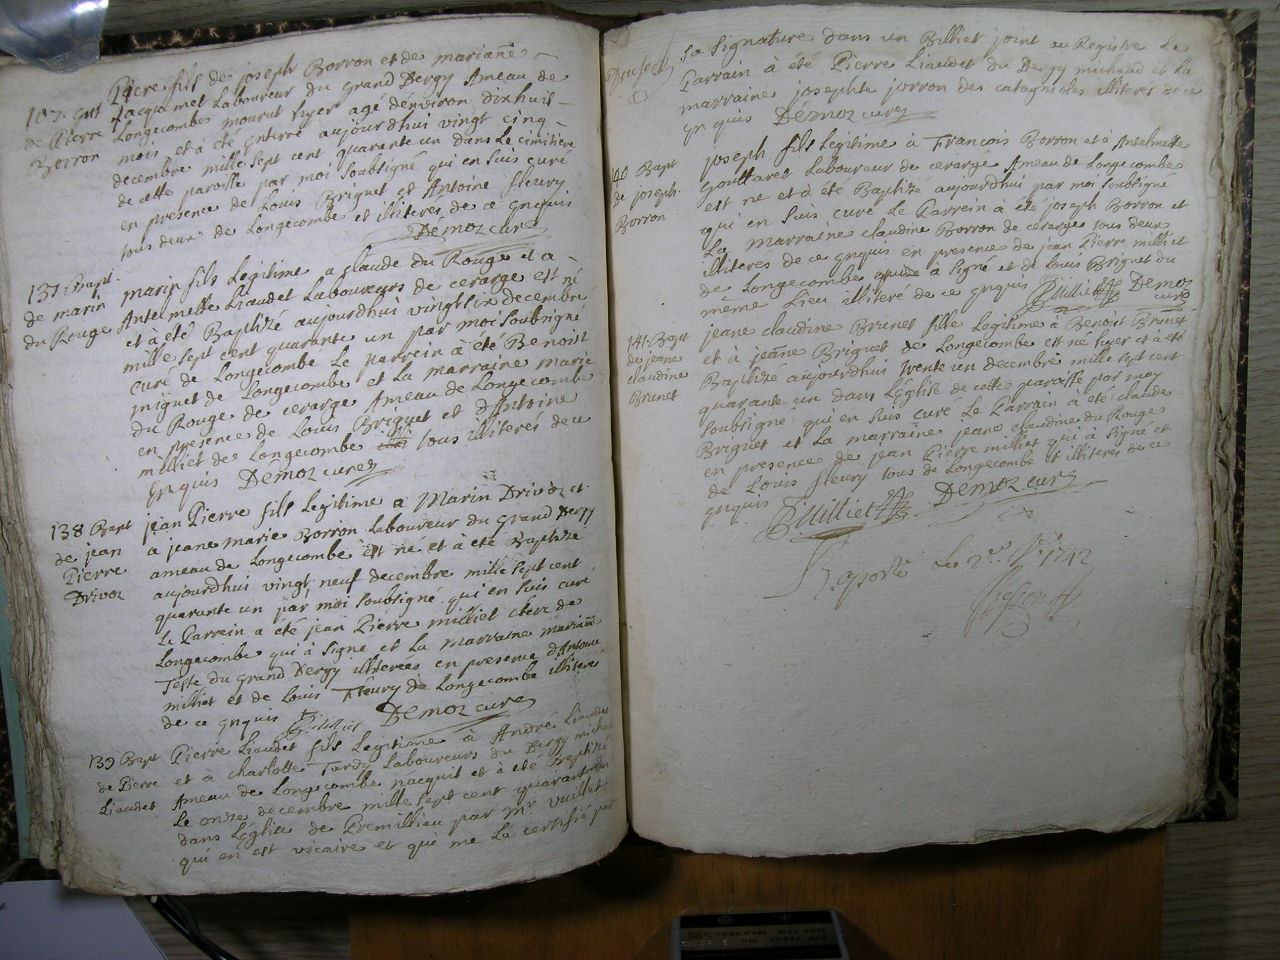 107. Ent
de Pierre
Borron
Piere fils de joseph Borron et de marianne
Jacquemet Laboureur du grand Dergy Ameau de
Longecombes mourut hyer agé d'environ dixhuit
mois et a été enterré aujourdhui vingt cinq
decembre mille sept cent quarante un dans Le cimitiere
de cette paroisse par moi soubsigné qui en suis curé
en presence de Louis Briguet et Antoine fleury
tous deux de Longecombe et illiterés de ce enquis
Demoz curé
137. Bapt.
de marin
du Rouge
marin fils Legitime a claude du Rouge et a
Antelmelle Liaudet Laboureurs de cerarge est né
et à été Baptizé aujourdhui vingt six decembre
mille sept cent quarante un par moi soubsigné
curé de Longecombe Le parrein à été Benoist
de Longecombe et La marraine marie
du Rouge de cerarge Ameau de Longecombe
en presence de Louis Briguet et d'Antoine
milliet de Longecombe tous illiterés de ce
enquis Demoz curé
138 Bapt
de jean
Pierre
Drivoz
jean Pierre fils Legitime a Marin Drivoz et
a jeane marie Borron Laboureur du grand Dergy
ameau de Longecombe est né et à été Baptize
aujourdhui vingt neuf decembre mille sept cent
quarante un par moi soubsigné qui en suis curé
Le Parrein a été jean Pierre milliet clerc de
Longecombe qui à signe et La marraine marianne
Teste du grand Dergy illiterées en presence d'Antoine
milliet et de Louis Fleury de Longecombe illiteres
de ce enquis Milliet Demoz curé
139 Bapt
de Pierre
Liaudet
Pierre Liaudet fils Legitime à André Liaudet
et a charlotte Tardy Laboureurs du Dergy michau
Ameau de Longecombe nacquit et à été Baptizé
Le onze decembre mille sept cent quarante un
dans Leglise de Premillieu par Mr. vuillet
qui en est vicaire et qui me La certifié par
sa signature dans un Billiet joint au Registre Le
Parrain à été Pierre Liaudet du Dergy michaud et La
marraine josephte jorron des catagnioles illiteres de ce
enquis Demoz curé
140 Bapt
de joseph
Borron
joseph fils Legitime à François Borron et à Antelmette
gouttaret Laboureur de cerarge Ameau de Longecombe
est ne et à été Baptize aujourdhui par moi soubsigné
qui en suis curé Le Parrein à été joseph Borron et
La marraine claudine Borron de cerarge tous deux
illiteres de ce enquis en presence de jean Pierre milliet
de Longecombe à signé et de Louis Briguet du
même Lieu illiteré de ce enquis Milliet Demoz
curé
141. Bapt
de jeane
claudine
Brunet
jeane claudine Brunet fille Legitime à Benoist Brunet
et à jeane Briguet de Longecombe est ne hyer et a été
Baptizé aujourdhui trente un decembre mille sept cent
quarante un dans L'Eglise de cette paroisse par moy
soubsigné qui en suis curé Le Parrain à été claude
Briguet et La marraine jeane claudine du Rouge
en presence de jean Pierre milliet qui à signé et
de Louis fleury tous de Longecombe et illiteres de ce
enquis Milliet Demoz curé
Raporté Le 2e 1742